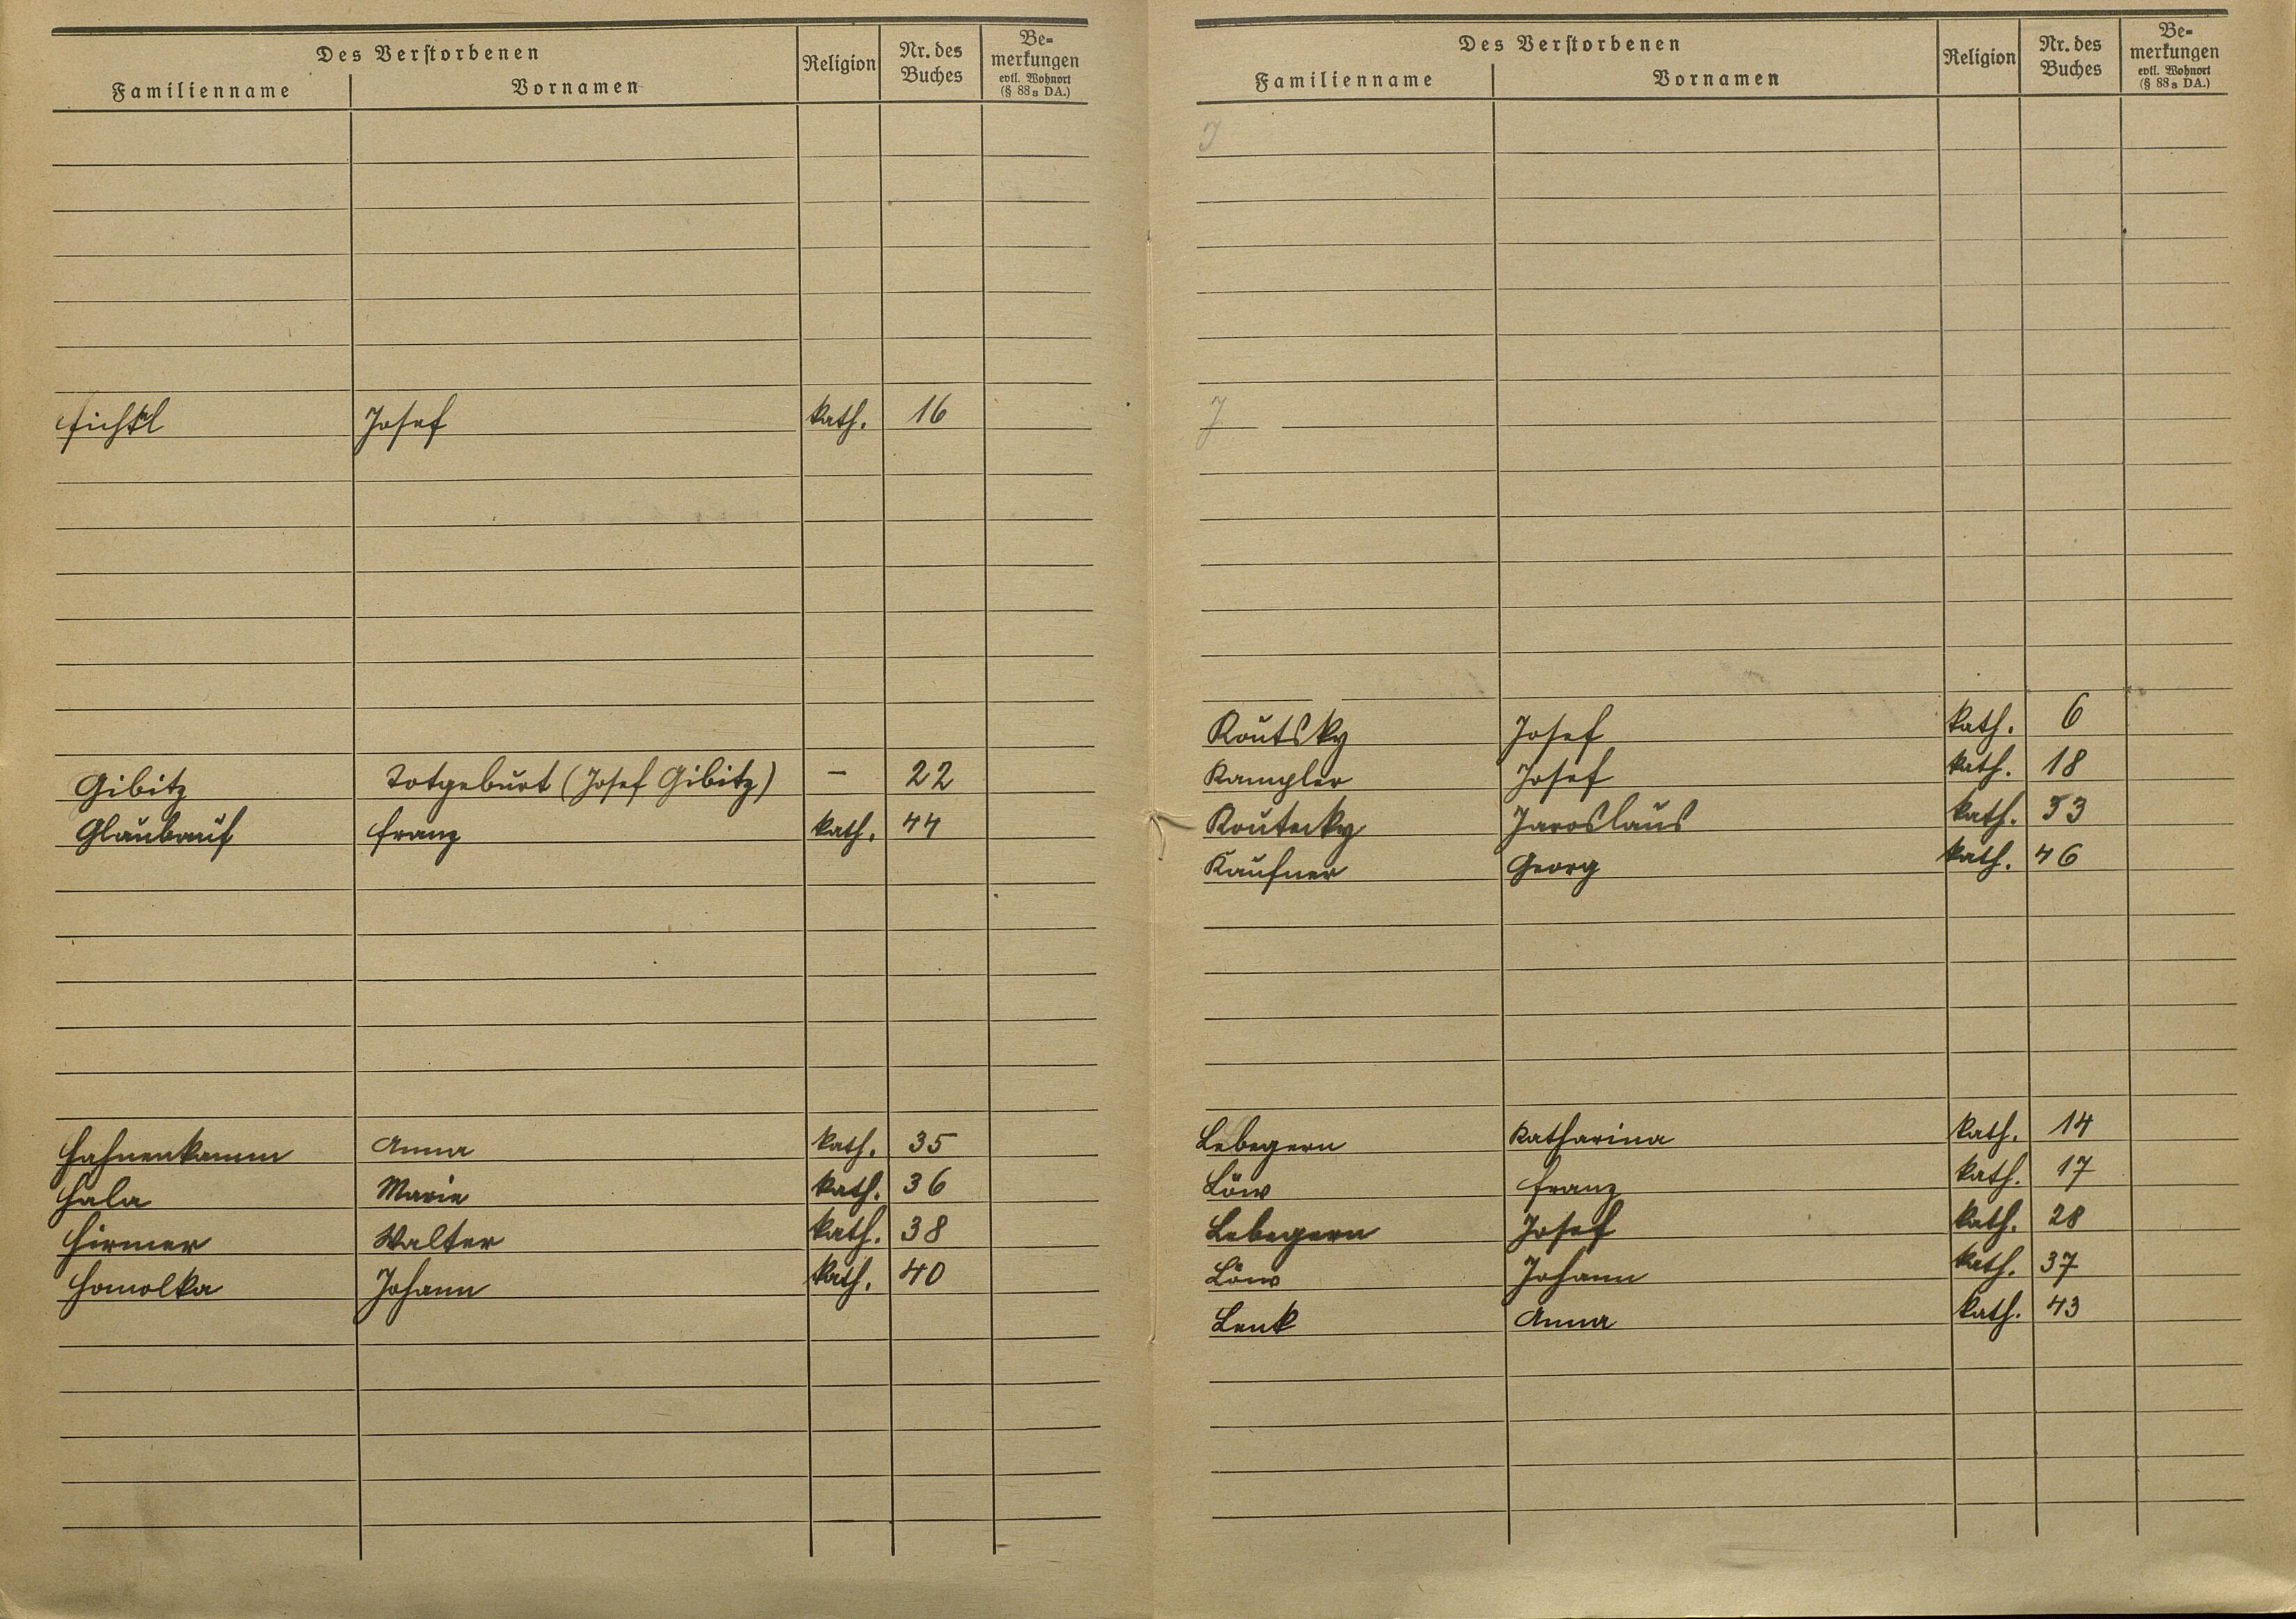 Des Verstorbenen
Familienname Vornamen Religion Nr. des Buches Bemerkungen evtl. Wohnort (§ 88a DA.)
Fichtl Josef kath. 16
Gibitz Totgeburt (Josef Gibitz) – 22
Glaubauf Franz kath. 44
Hahnenkamm Anna kath. 35
Hala Marie kath. 36
Hirmer Walter kath. 38
Homolka Johann kath. 40
Des Verstorbenen
Familienname Vornamen Religion Nr. des Buches Bemerkungen evtl. Wohnort (§ 88a DA.)
J
J
Koutsky Josef kath. 6
Kampler Josef kath. 18
Koutecky Jaroslaus kath. 33
Kaufner Georg kath. 46
Lebegern Katharina kath. 14
Löw Franz kath. 17
Lebegern Josef kath. 28
Löw Johann kath. 37
Lenk Anna kath. 43